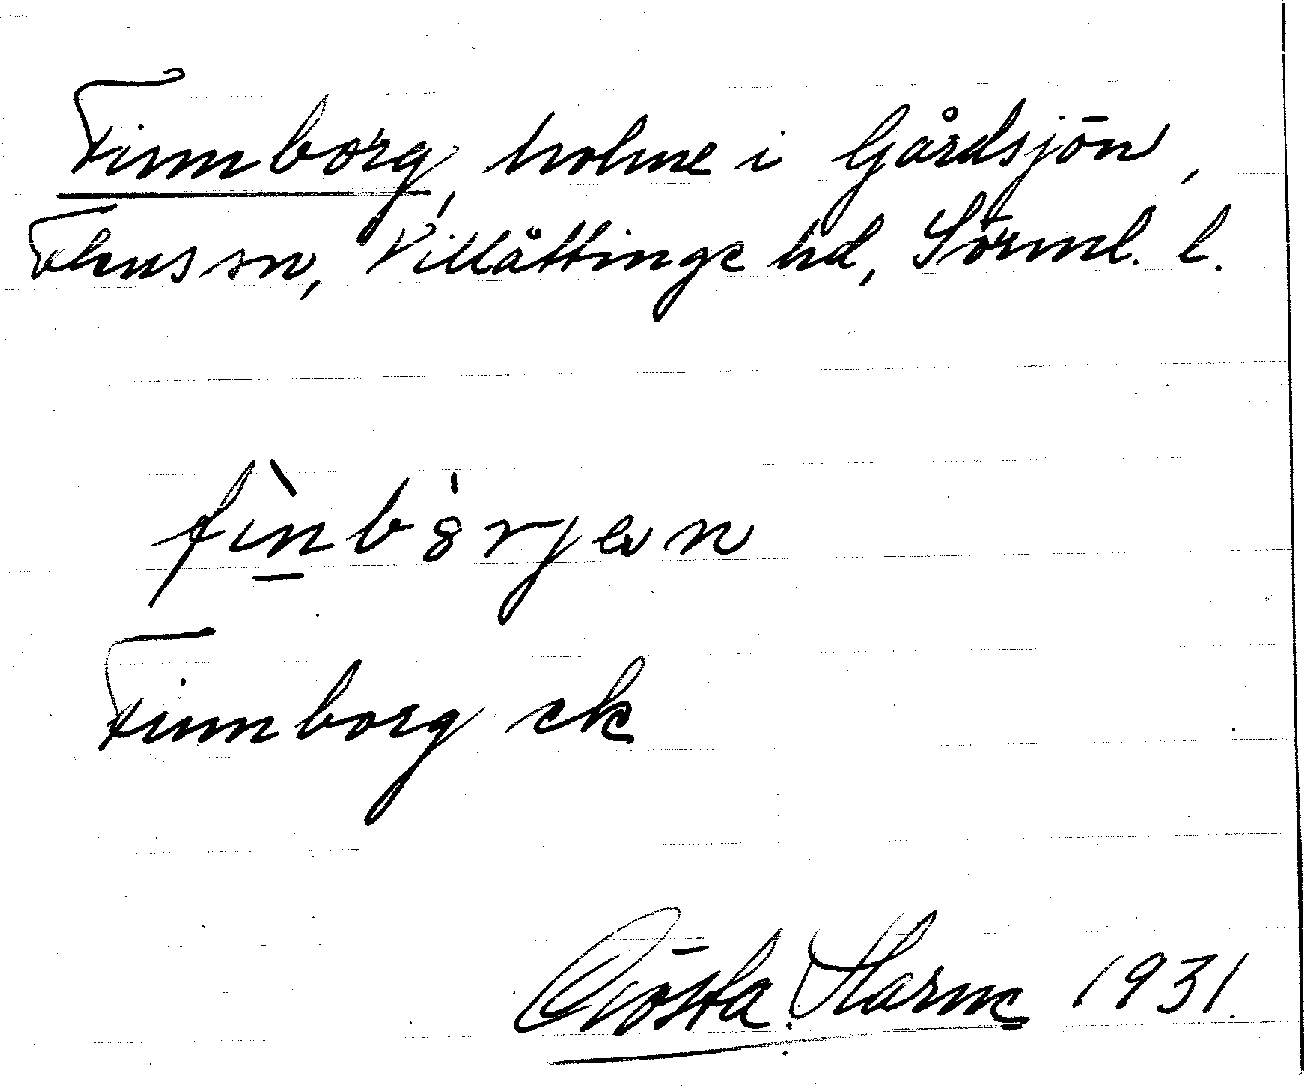 Finnborg, holme i Gårdsjön,
Flens sn, Villåttinge hd, Sörml. l.
fìnbȯrjen
Finnborg ek
Gösta Harme 1931.